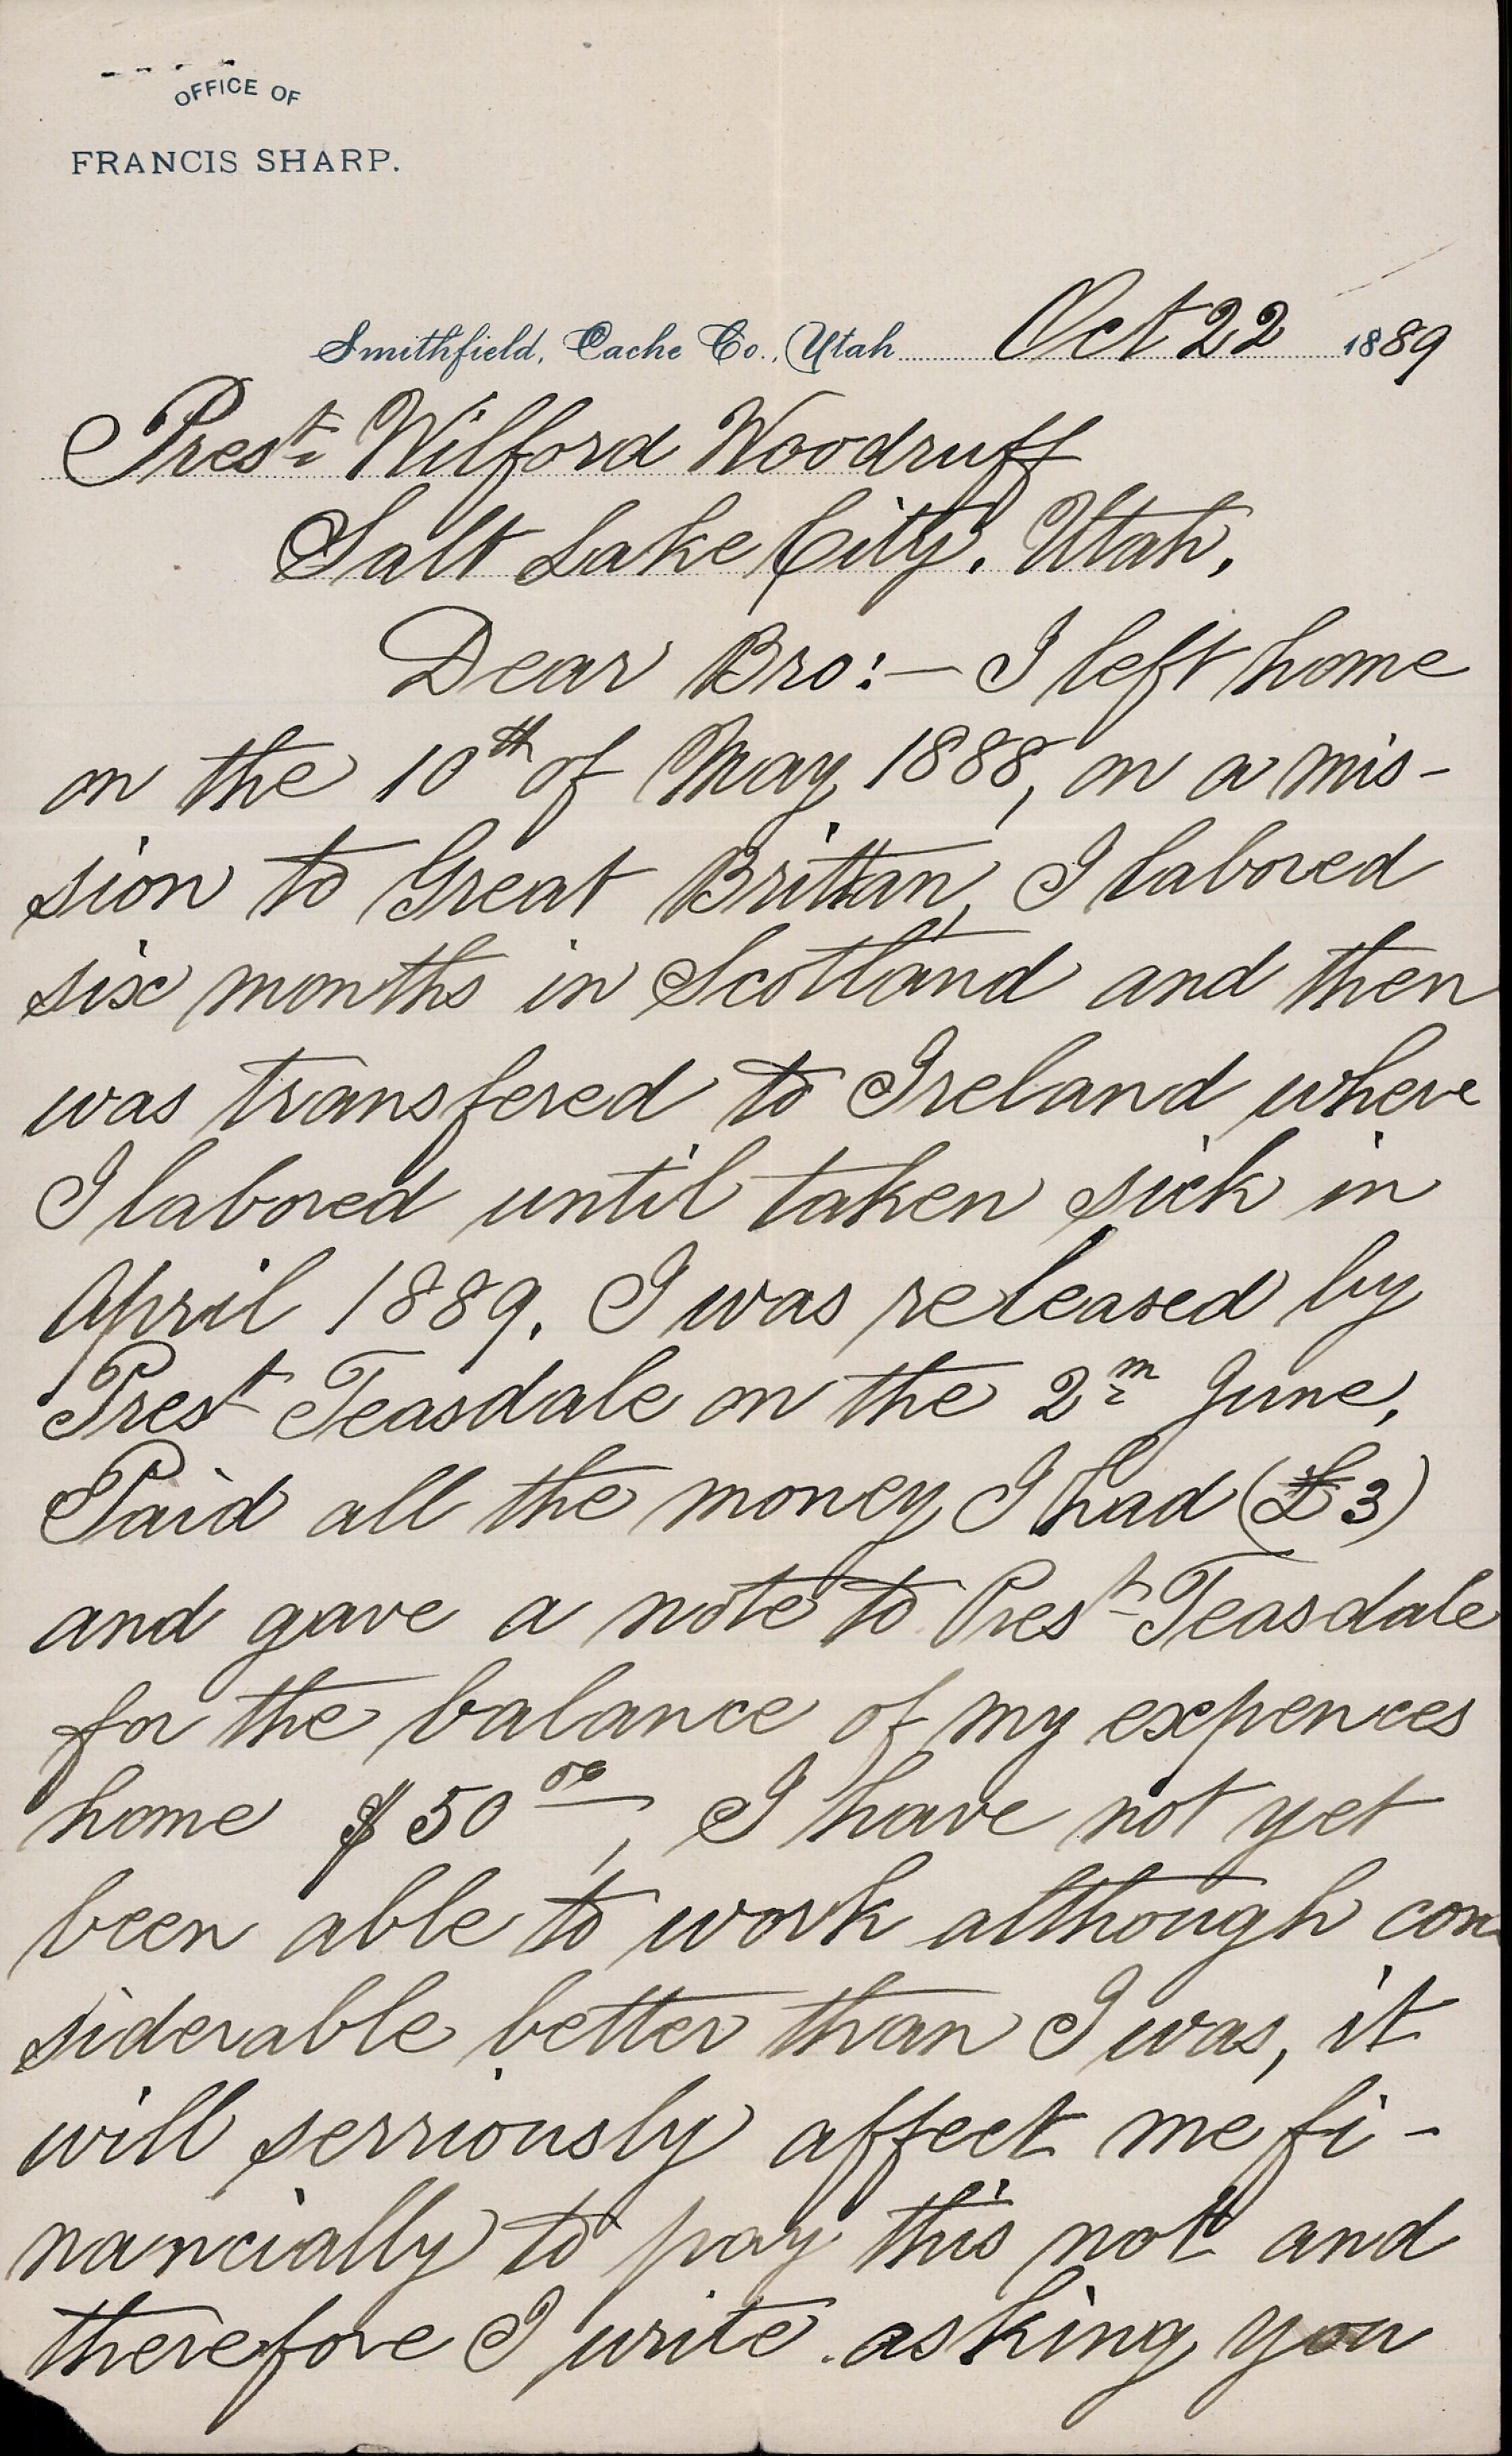 OFFICE OF
FRANCIS SHARP.
Smithfield, Cache Co., Utah Oct 22 1889
Prest. Wilford Woodruff
Salt Lake City. Utah.
Dear Bro:— I left home
on the 10th of May 1888, on a mis-
sion to Great Brittan, I labored
six months in Scotland and then
was transfered to Ireland where
I labored until taken sick in
April 1889. I was released by
Prest Teasdale on the 2nd June,
Paid all the money I had (£3)
and gave a note to Prest Teasdale
for the balance of my expences
home $50.00, I have not yet
been able to work although con
siderable better than I was, it
will serriously affect me fi-
nancially to pay this not and
therefore I write asking you